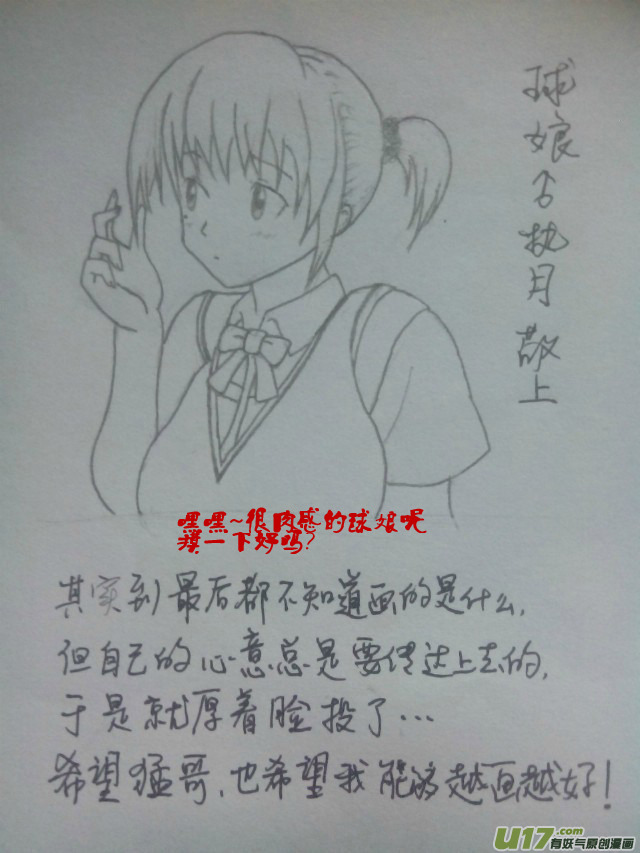 球娘个执月 敬上
嘿嘿~很肉感的球娘呢
摸一下好吗?
其实到最后都不知道画的是什么,
但自己的心意总是要传达上去的,
于是就厚着脸投了...
希望猛哥,也希望我能够越画越好!
U17.com
有妖气原创漫画